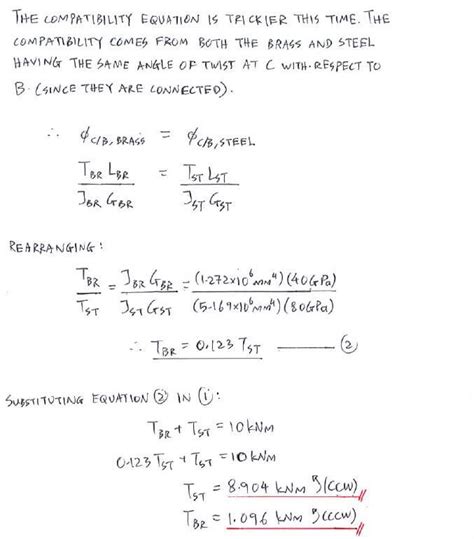 THE COMPATIBILITY EQUATION IS TRICKIER THIS TIME. THE
COMPATIBILITY COMES FROM BOTH THE BRASS AND STEEL
HAVING THE SAME ANGLE OF TWIST AT C WITH-RESPECT TO
B. (SINCE THEY ARE CONNECTED).
∴ ϕ_C/B, BRASS = ϕ_C/B, STEEL
T_BR L_BR / J_BR G_BR = T_ST L_ST / J_ST G_ST
REARRANGING:
T_BR / T_ST = J_BR G_BR / J_ST G_ST = (1.272x10^6 mm^4)(40GPa) / (5.169x10^6 mm^4)(80GPa)
∴ T_BR = 0.123 T_ST ——— ②
SUBSTITUTING EQUATION ② IN ①:
T_BR + T_ST = 10 kNm
0.123 T_ST + T_ST = 10 kNm
T_ST = 8.904 kNm (CCW)
T_BR = 1.096 kNm (CCW)